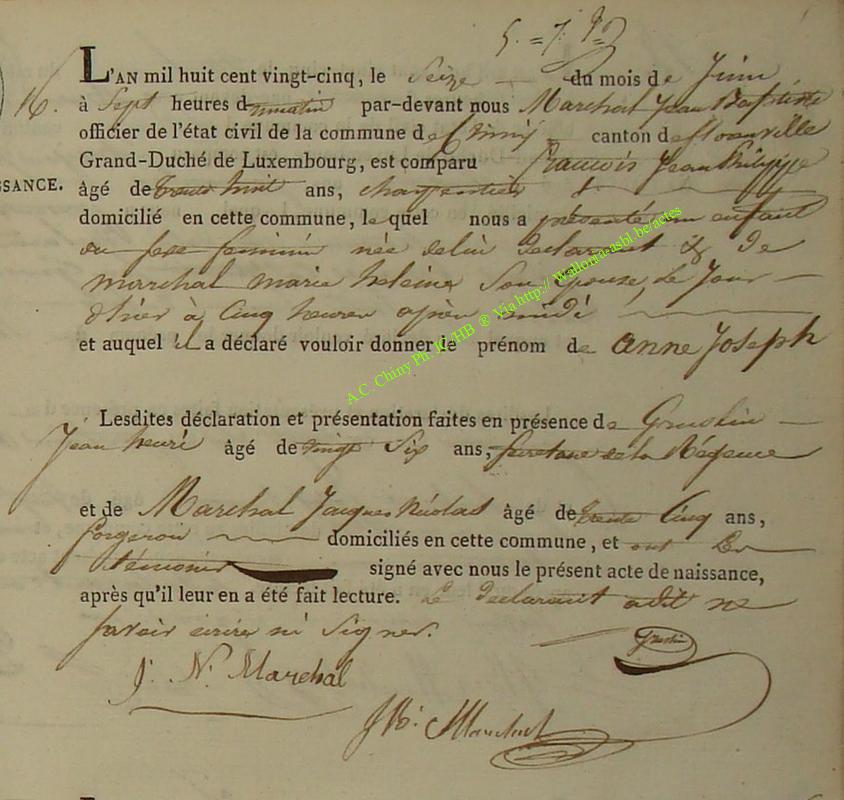 L'AN mil huit cent vingt-cinq, le Seize du mois de Juin
16. à Sept heures du matin par-devant nous Marchal Jean Baptiste
officier de l'état civil de la commune de Chiny canton de florenville
Grand-Duché de Luxembourg, est comparu francois Jean Philippe
SSANCE. âgé de trente huit ans, charpentier
domicilié en cette commune, lequel nous a présenté un enfant
du sexe feminin née de lui declarant & de
marchal marie heleine Son épouse, Le Jour
d'hier à Cinq heures après midi
et auquel il a déclaré vouloir donner le prénom de anne Joseph
A.C. Chiny Ph. JC/HB ® Via http://Wallonia-asbl.be/actes
Lesdites déclaration et présentation faites en présence de
Jean henri âgé de vingt Six ans, Secretaire de la Régence
et de Marchal Jacques Nicolas âgé de trente Cinq ans,
forgeron domiciliés en cette commune, et ont Les
témoins signé avec nous le présent acte de naissance,
après qu'il leur en a été fait lecture. Le declarant a dit ne
savoir écrire ni Signer.
J. N. Marchal
JB. Marchal